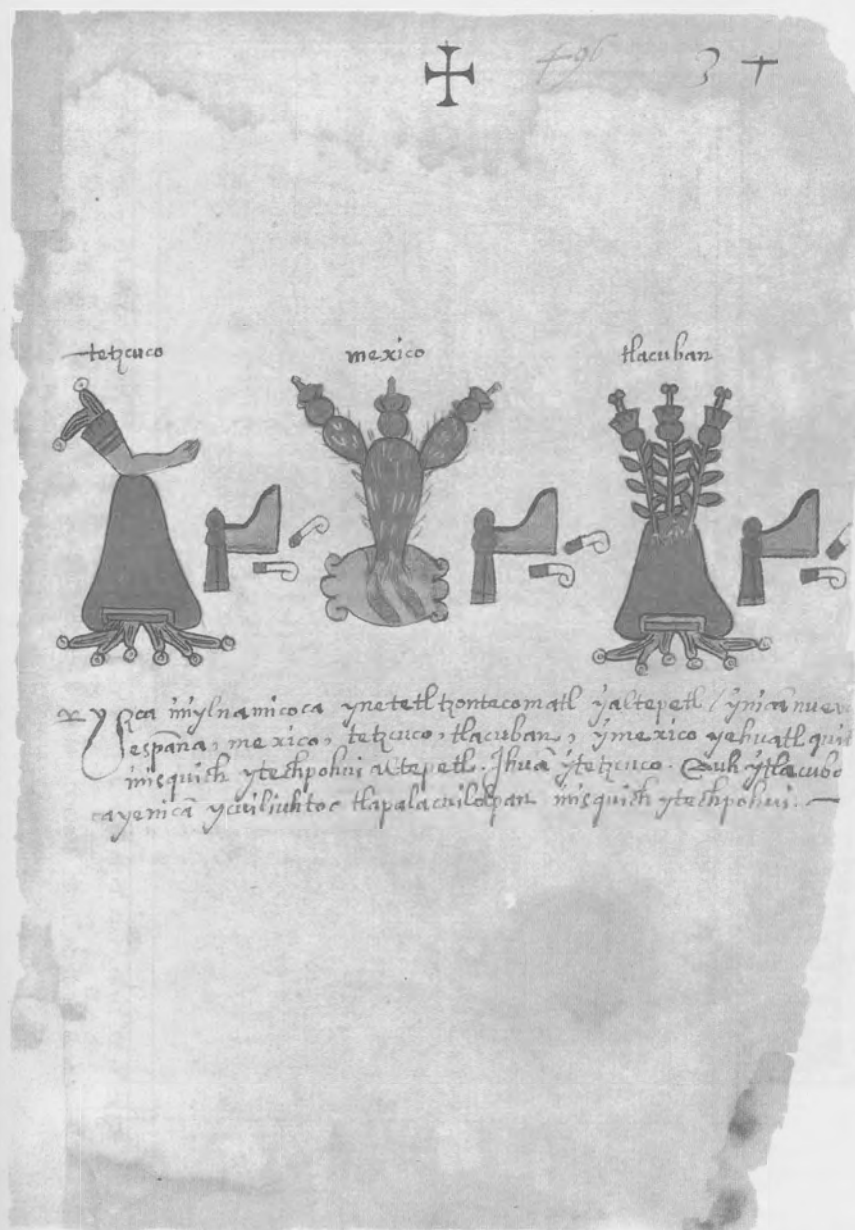 496 3
tetzcuco mexico tlacuban
yzca inylnamicoca ynetetl tzontecomatl yaltepetl / ynicā nuev
españa, mexico, tetzcuco, tlacuban, ymexico yehuatl quit
inisquich ytechpohui altepetl. Ihuā ytetzcuco. Auh ytlacubā
cayenicā ycuiliuhtoc tlapalacuilolpan inisquich ytechpohui.